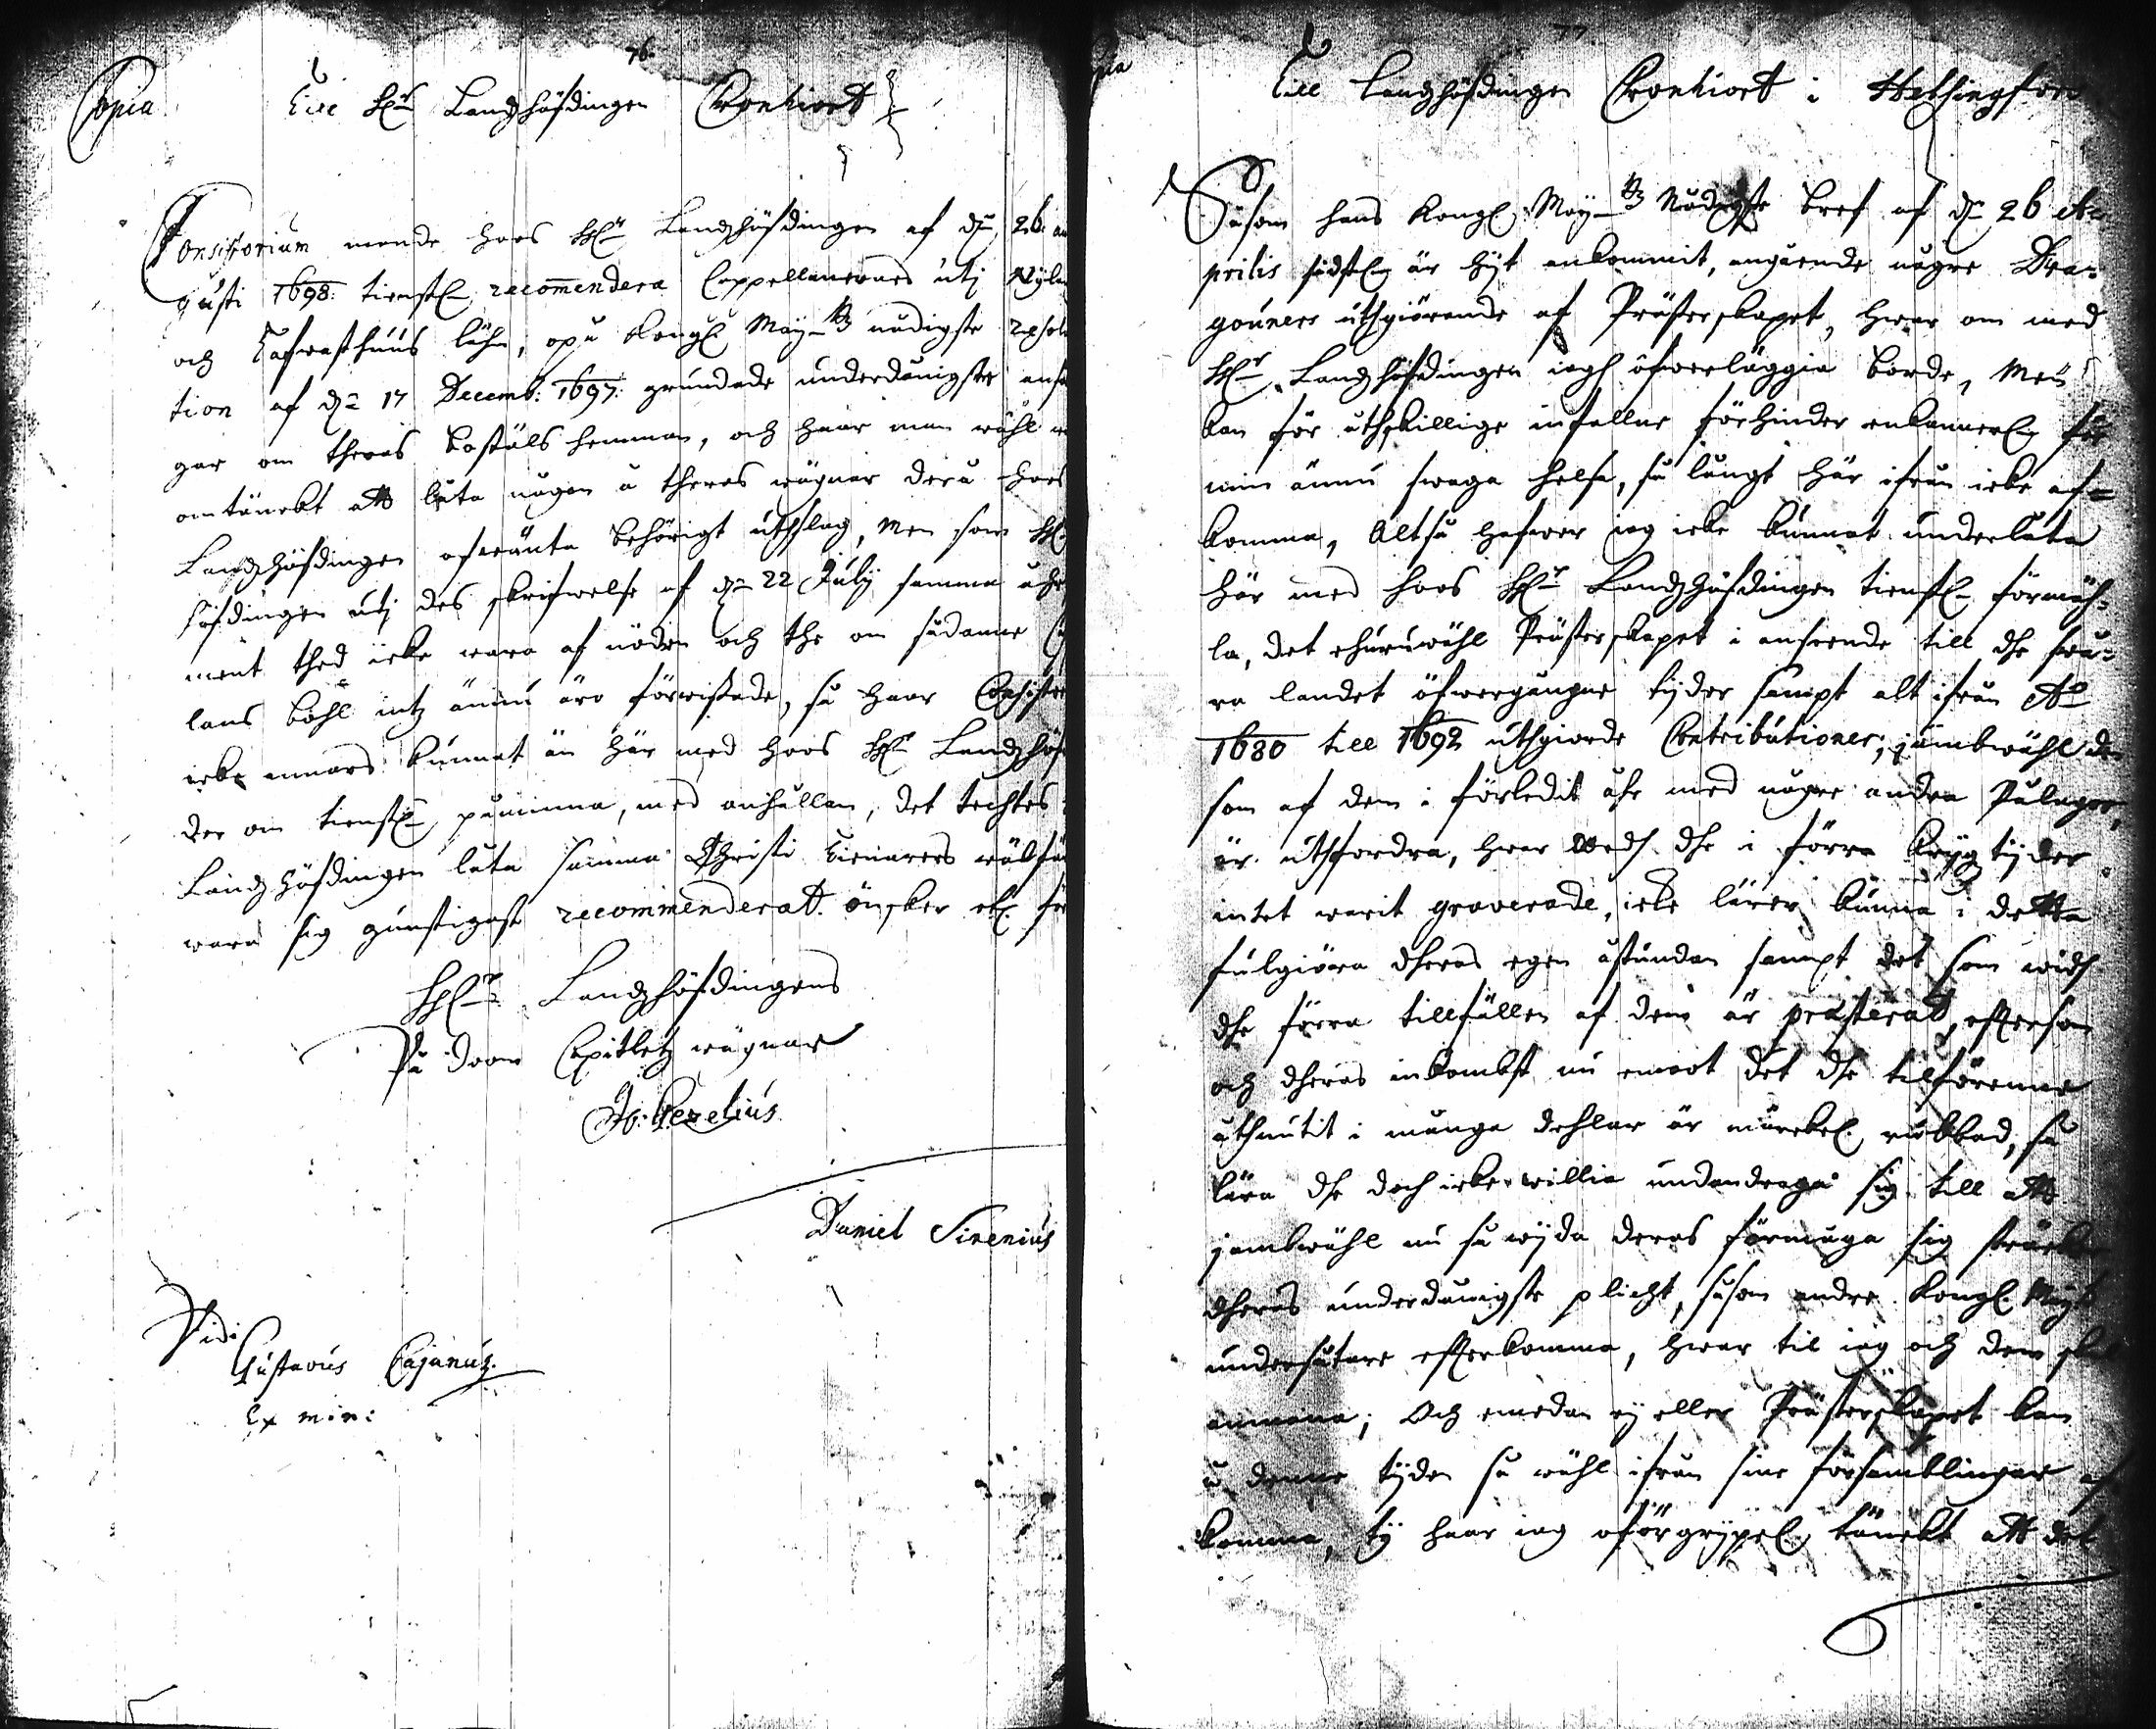 76.
Copia
Till H:r Landzhöfdingen Cronhiort
Consistorium monde hoos H:r Landzhöfdingen af d: 26 au
gusti 1698: tienstl: recomendera Cappellanernes utj Nylan
och Tafwasthuus lähn, opå Kongl May:tz nådigste resolu
tion af d: 17 Decemb: 1697: grundade underdånigste ansö
gar om theras bostäls hemman, och haar man wähl
omtänckt att låta någon å theras wägnar derå hoos
Landzhöfdingen afwänta behörigt uthslag, men som H:
höfdingen utj des skrifwelse af d: 22 Julij samma åhr
ment thed icke wara af nöden och the om sådanne
lans bohl intz ännu äro förwissade, så haar Consistor
icke annars kunnat än här med hoos H:r Landzhöf
der om tienstl: påminna, med anhållan, det techtes
Landzhöfdingen låta samma Christi tienarers wälfär
wara sig gunstigast recommenderatt. önsker etc. för
H:r Landzhöfdingens
På Dom Capitletz wägnar
Jo: Gezelius
Daniel Sirenius
Vidi
Gustavus Cajanus.
Ex min:
77
pia
Till Landzhöfdingen Cronhiort i Helsingfors
Såsom hans Kongl: May:tz Nådigste bref af d: 26 A-
prilis sidstl: är hijt ankommit, angående någre Dra-
gouners uthgiörande af Prästerskapet, hwar om med
H:r Landzhöfdingen iagh öfwerläggia borde, Men
kan för åthskillige infallne förhinder enkannerl: för
min ännu swaga helsa, så långt här ifrån icke af-
komma, Altså hafwer iag icke kunnat underlåta
här med hoos H:r Landzhöfdingen tienstl: förmäh-
la, det ehuruwähl Prästerskapet i anseende till dhe swå-
ra landet öfwergångne tijder sampt alt ifrån A:o
1680 till 1692 uthgiorde Contributioner, jämbwähl den
som af dem i förledit åhr med någre andra Pålagor,
är uthfordra, hwar wedh dhe i förra krijgz tijder
intet warit graverade, icke lärer kunna i detta
fulgiöra dheras egen åstundan sampt det som widh
dhe förra tillfällen af dem är præsterat, efftersom
och dheras inkombst nu emoot det dhe tilförenne
åthnutit i månge dehlar är märckel: rubbad, så
lära dhe doch icke willia undandraga sig till att
jembwähl nu så wijda deras förmåga sig sträcker
dheras underdånigste plicht, såsom andre Kongl. May:tz
undersåtare efterkomma, hwar til iag och dem skal
anmana; Och emedan ej eller Prästerskapet kan
å denne tijden så wähl ifrån sine församblingar af
komma, ty haar iag oförgrijpel: tänckt att det